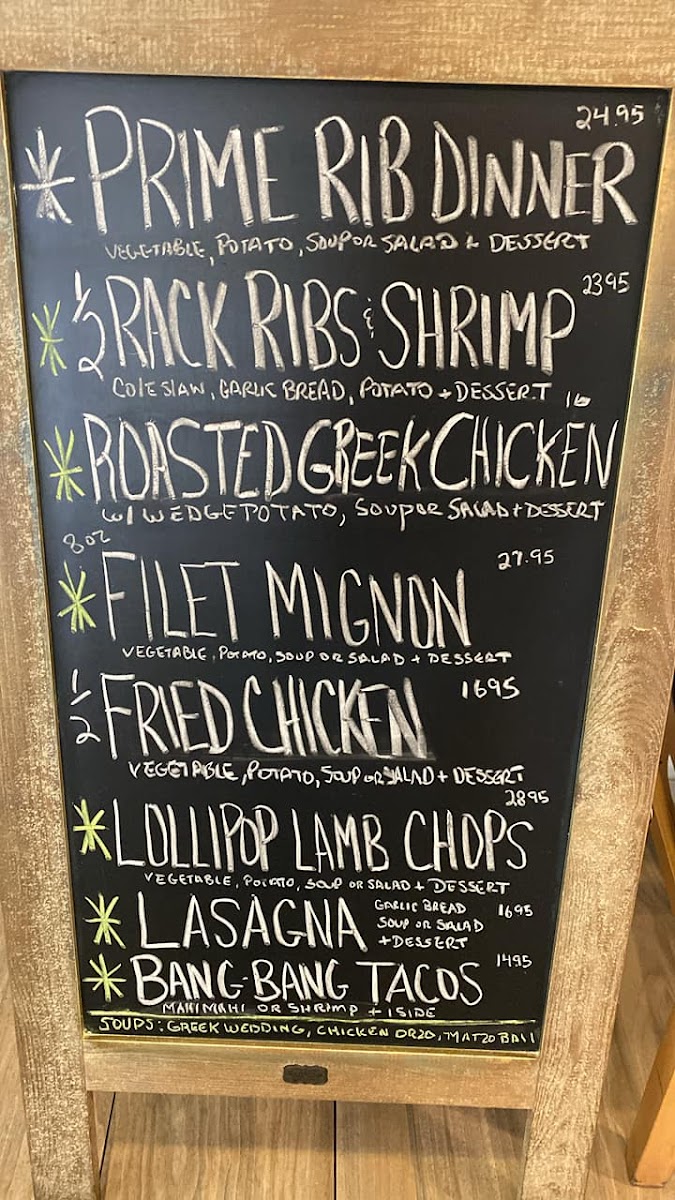 24.95
* PRIME RIB DINNER
VEGETABLE, POTATO, SOUP OR SALAD + DESSERT
2395
* 1/2 RACK RIBS & SHRIMP
COLESLAW, GARLIC BREAD, POTATO + DESSERT
16
* ROASTED GREEK CHICKEN
W/ WEDGE POTATO, SOUP OR SALAD + DESSERT
8oz
27.95
* FILET MIGNON
VEGETABLE, POTATO, SOUP OR SALAD + DESSERT
1695
1/2 FRIED CHICKEN
VEGETABLE, POTATO, SOUP OR SALAD + DESSERT
2895
* LOLLIPOP LAMB CHOPS
VEGETABLE, POTATO, SOUP OR SALAD + DESSERT
* LASAGNA
GARLIC BREAD
SOUP OR SALAD
+ DESSERT
1695
1495
* BANG-BANG TACOS
MAHI MAHI OR SHRIMP + 1 SIDE
SOUPS: GREEK WEDDING, CHICKEN ORZO, MATZO BALL